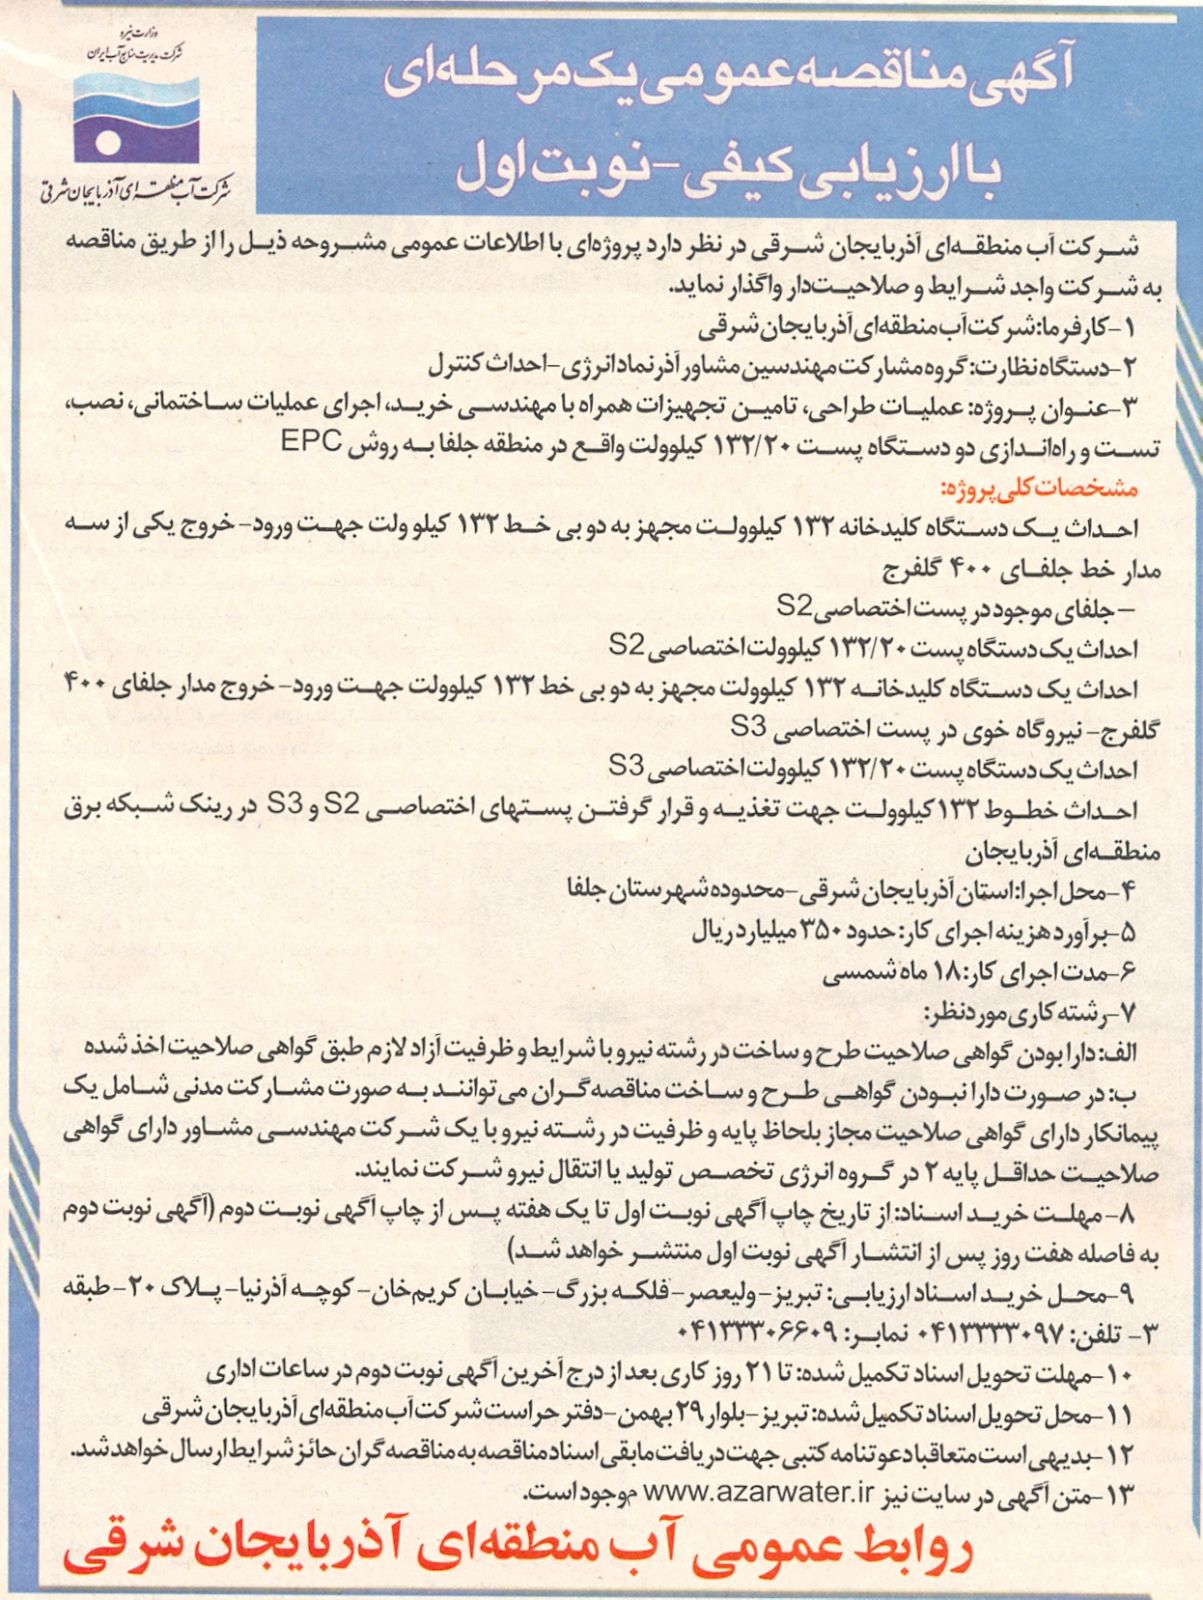 وزارت نیرو
شرکت مدیریت منابع آب ایران
شرکت آب منطقه‌ای آذربایجان شرقی
آگهی مناقصه عمومی یک مرحله‌ای
با ارزیابی کیفی - نوبت اول
شرکت آب منطقه‌ای آذربایجان شرقی در نظر دارد پروژه‌ای با اطلاعات عمومی مشروحه ذیل را از طریق مناقصه
به شرکت واجد شرایط و صلاحیت‌دار واگذار نماید.
۱-کارفرما: شرکت آب منطقه‌ای آذربایجان شرقی
۲-دستگاه نظارت: گروه مشارکت مهندسین مشاور آذرنماد انرژی-احداث کنترل
۳-عنوان پروژه: عملیات طراحی، تامین تجهیزات همراه با مهندسی خرید، اجرای عملیات ساختمانی، نصب،
تست و راه‌اندازی دو دستگاه پست ۱۳۲/۲۰ کیلوولت واقع در منطقه جلفا به روش EPC
مشخصات کلی پروژه:
احداث یک دستگاه کلیدخانه ۱۳۲ کیلوولت مجهز به دو بی خط ۱۳۲ کیلو ولت جهت ورود- خروج یکی از سه
مدار خط جلفای ۴۰۰ گلفرج
– جلفای موجود در پست اختصاصی S2
احداث یک دستگاه پست ۱۳۲/۲۰ کیلوولت اختصاصی S2
احداث یک دستگاه کلیدخانه ۱۳۲ کیلوولت مجهز به دو بی خط ۱۳۲ کیلوولت جهت ورود- خروج مدار جلفای ۴۰۰
گلفرج- نیروگاه خوی در پست اختصاصی S3
احداث یک دستگاه پست ۱۳۲/۲۰ کیلوولت اختصاصی S3
احداث خطوط ۱۳۲کیلوولت جهت تغذیه و قرار گرفتن پستهای اختصاصی S2 و S3 در رینک شبکه برق
منطقه‌ای آذربایجان
۴-محل اجرا: استان آذربایجان شرقی-محدوده شهرستان جلفا
۵-برآورد هزینه اجرای کار: حدود ۳۵۰ میلیارد ریال
۶-مدت اجرای کار: ۱۸ ماه شمسی
۷-رشته کاری موردنظر:
الف: دارا بودن گواهی صلاحیت طرح و ساخت در رشته نیرو با شرایط و ظرفیت آزاد لازم طبق گواهی صلاحیت اخذ شده
ب: در صورت دارا نبودن گواهی طرح و ساخت مناقصه‌گران می‌توانند به صورت مشارکت مدنی شامل یک
پیمانکار دارای گواهی صلاحیت مجاز بلحاظ پایه و ظرفیت در رشته نیرو با یک شرکت مهندسی مشاور دارای گواهی
صلاحیت حداقل پایه ۲ در گروه انرژی تخصص تولید یا انتقال نیرو شرکت نمایند.
۸- مهلت خرید اسناد: از تاریخ چاپ آگهی نوبت اول تا یک هفته پس از چاپ آگهی نوبت دوم (آگهی نوبت دوم
به فاصله هفت روز پس از انتشار آگهی نوبت اول منتشر خواهد شد)
۹-محل خرید اسناد ارزیابی: تبریز- ولیعصر- فلکه بزرگ- خیابان کریم‌خان- کوچه آذرنیا- پلاک ۲۰- طبقه
۳- تلفن: ۰۴۱۳۳۳۳۰۹۷ نمابر: ۰۴۱۳۳۳۰۶۶۰۹
۱۰-مهلت تحویل اسناد تکمیل شده: تا ۲۱ روز کاری بعد از درج آخرین آگهی نوبت دوم در ساعات اداری
۱۱-محل تحویل اسناد تکمیل شده: تبریز-بلوار ۲۹ بهمن-دفتر حراست شرکت آب منطقه‌ای آذربایجان شرقی
۱۲-بدیهی است متعاقبا دعوتنامه کتبی جهت دریافت مابقی اسناد مناقصه به مناقصه گران حائز شرایط ارسال خواهد شد.
۱۳-متن آگهی در سایت نیز www.azarwater.ir موجود است.
روابط عمومی آب منطقه‌ای آذربایجان شرقی